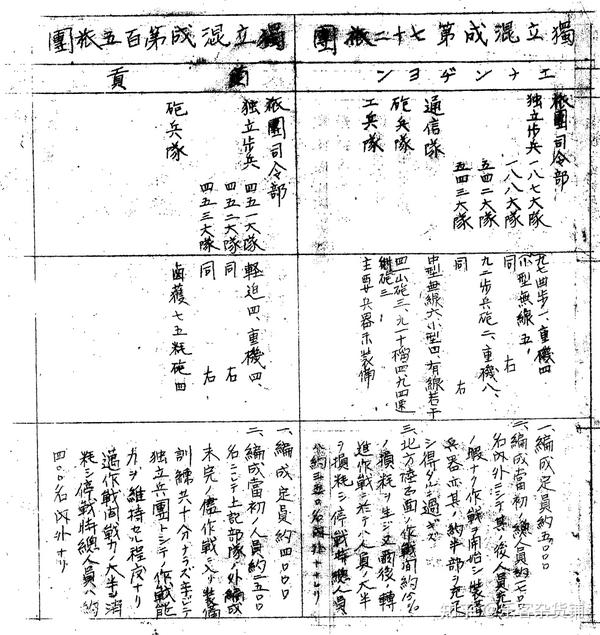 獨立混成第七十二旅團
エナンヂヨン
旅團司令部
独立歩兵一八七大隊
一八八大隊
五四二大隊
五四三大隊
通信隊
砲兵隊
工兵隊
九七曲歩一、重機四
小型無線五、
同 右
九二歩兵砲二、重機八、
同 右
中型無線六小型四有線若干
四一山砲三、九一十榴四九四速
射砲三
主要兵器未装備
一、編成定員約五〇〇〇
名内外ニシテ其ノ後人員充足
ノ暇ナク作戦ヲ開始シ装備
兵器亦其ノ約半部ヲ充足
シ得タルニ過ギズ
ノ損耗ヲ生ジ又最後ノ轉
進作戦ニ於テハ人員ノ大半
ヲ損耗シ停戦時總人員
獨立混成第百五旅團
蘭貢
旅團司令部
独立歩兵四五一大隊
四五二大隊
四五三大隊
砲兵隊
軽迫四、重機四、
同 右
同 右
鹵獲七五粍砲四
一、編成定員約四〇〇〇
二、編成當初ノ人員約二五〇〇
名ニシテ上記部隊ノ外編成
未完ノ儘作戦ニ入リ装備
訓練共十分ナラズ主トシテ
独立兵團トシテノ作戦能
力ヲ維持セル程度ナリ
過作戦間戦力ノ大半ヲ消
耗シ停戦時總人員ハ約
四〇〇名内外ナリ